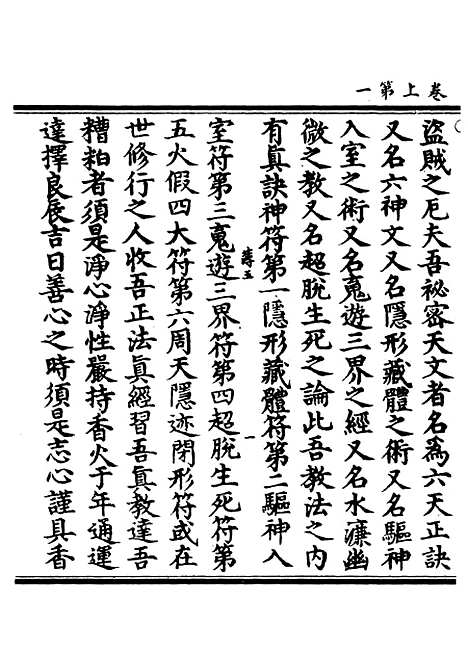 卷上第一
盜賊之厄夫吾祕密天文者名為六天正訣
又名六神文又名隱形藏體之術又名驅神
入室之術又名䰟遊三界之經又名水濂幽
微之教又名超脫生死之論此吾教法之內
有眞訣神符第一隱形藏體符第二驅神入
薄五
一
室符第三䰟遊三界符第四超脫生死符第
五火假四大符第六周天隱迹閉形符或在
世修行之人收吾正法眞經習吾眞教達吾
糟粕者須是淨心淨性嚴持香火于年通運
達擇良辰吉日善心之時須是志心謹具香